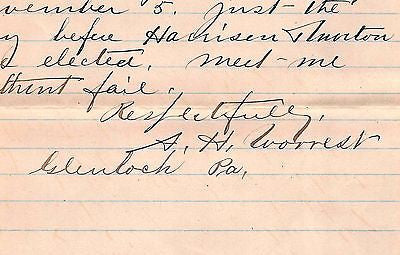 vember 5. Just the
y before Harrison & Morton
elected. Meet me
thout fail.
Respectfully,
A. H. Worrest
Glenloch Pa.